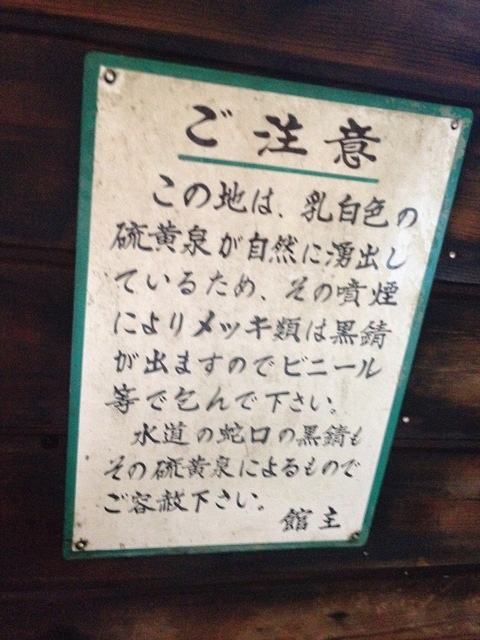 ご注意
この地は、乳白色の
硫黄泉が自然に湧出し
ているため、その噴煙
によりメッキ類は黒錆
が出ますのでビニール
等で乞んで下さい。
水道の蛇口の黒錆も
その硫黄泉によるもので
ご容赦下さい。
館主